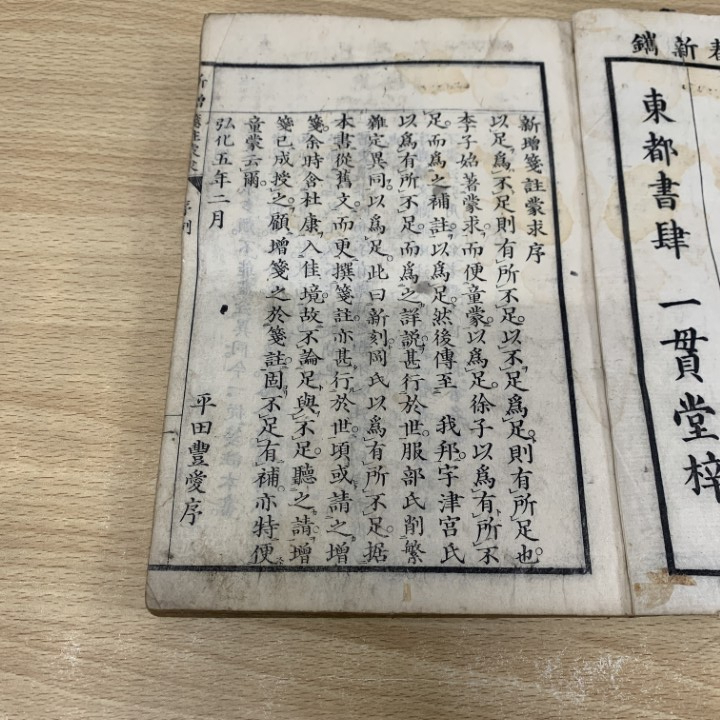 新鐫
東都書肆 一貫堂梓
新增箋註蒙求序
以足爲不足則有所不足。以不足爲足。則有所足也。
李子始著蒙求。而便童蒙以爲足。徐子以爲有所不
足。而爲之補註。以爲足。然後傳至 我邦宇津宮氏
以爲有所不足。而爲之詳說。甚行於世。服部氏削繁
雜定異同。以爲足。此曰新刻。岡氏以爲有所不足。据
本書從舊文。而更撰箋註。亦甚行於世。頃或請之增
箋。余時含杜康入佳境。故不論足與不足。聽之請。增
箋已成授之。顧增箋之於箋註。固不足有補。亦特便
童蒙云爾。
弘化五年二月
平田豐愛序